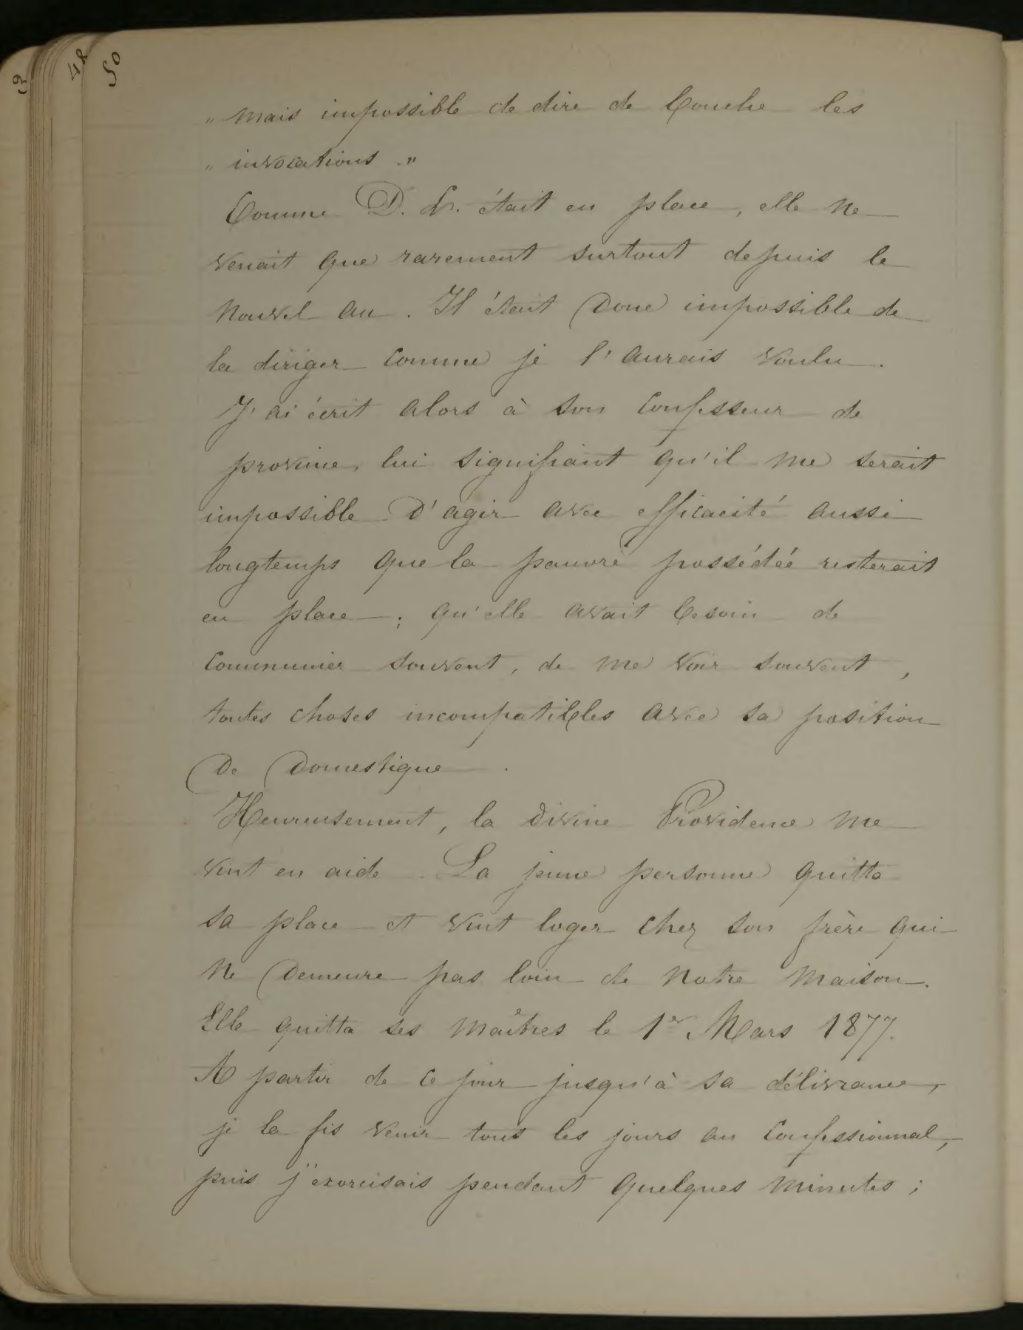 50
48
„ mais impossible de dire de bouche les
„ invocations . "
Comme D. L. était en place, elle ne
venait que rarement surtout depuis le
nouvel an . Il était donc impossible de
la diriger comme je l'aurais voulu .
J'ai écrit alors à son confesseur de
province lui signifiant qu'il me serait
impossible d'agir avec efficacité aussi
longtemps que la pauvre possédée resterait
en place ; qu'elle avait besoin de
communier souvent, de me voir souvent,
toutes choses incompatibles avec sa position
de domestique .
Heureusement, la divine Providence me
vint en aide . La jeune personne quitta
sa place et vint loger chez son frère qui
ne demeure pas loin de notre maison .
Elle quitta ses maîtres le 1er Mars 1877.
A partir de ce jour jusqu'à sa délivrance,
je la fis venir tous les jours au confessionnal,
puis j'exorcisais pendant quelques minutes ;